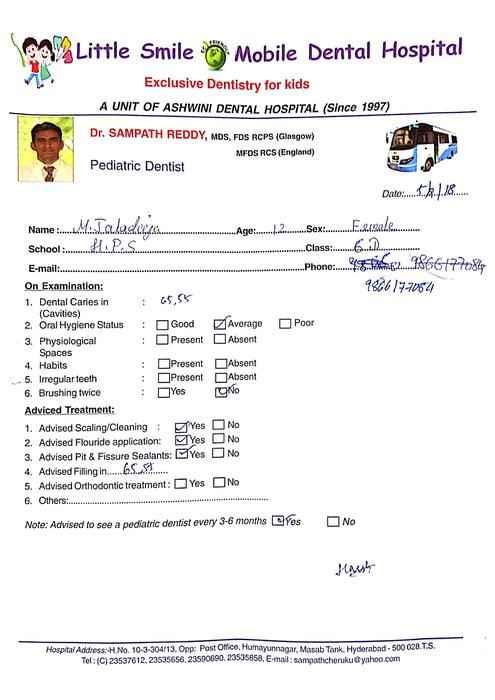 Little Smile ECO FRIENDLY Mobile Dental Hospital
Exclusive Dentistry for kids
A UNIT OF ASHWINI DENTAL HOSPITAL (Since 1997)
Dr. SAMPATH REDDY, MDS, FDS RCPS (Glasgow)
MFDS RCS (England)
Pediatric Dentist
Date:
Name: M. Jaladeeja Age: 12 Sex: Female
School: H.P.S Class: 6 D
E-mail: Phone: 9866177084
9866177084
On Examination:
1. Dental Caries in : 65, 55
(Cavities)
2. Oral Hygiene Status : Good Average Poor
3. Physiological : Present Absent
Spaces
4. Habits : Present Absent
5. Irregular teeth : Present Absent
6. Brushing twice : Yes No
Adviced Treatment:
1. Advised Scaling/Cleaning : Yes No
2. Advised Flouride application: Yes No
3. Advised Pit & Fissure Sealants: Yes No
4. Advised Filling in 65, 55
5. Advised Orthodontic treatment : Yes No
6. Others:
Note: Advised to see a pediatric dentist every 3-6 months Yes No
Hospital Address:-H.No. 10-3-304/13, Opp: Post Office, Humayunnagar, Masab Tank, Hyderabad - 500 028.T.S.
Tel : (C) 23537612, 23535656, 23590690, 23535858, E-mail : sampathcheruku@yahoo.com